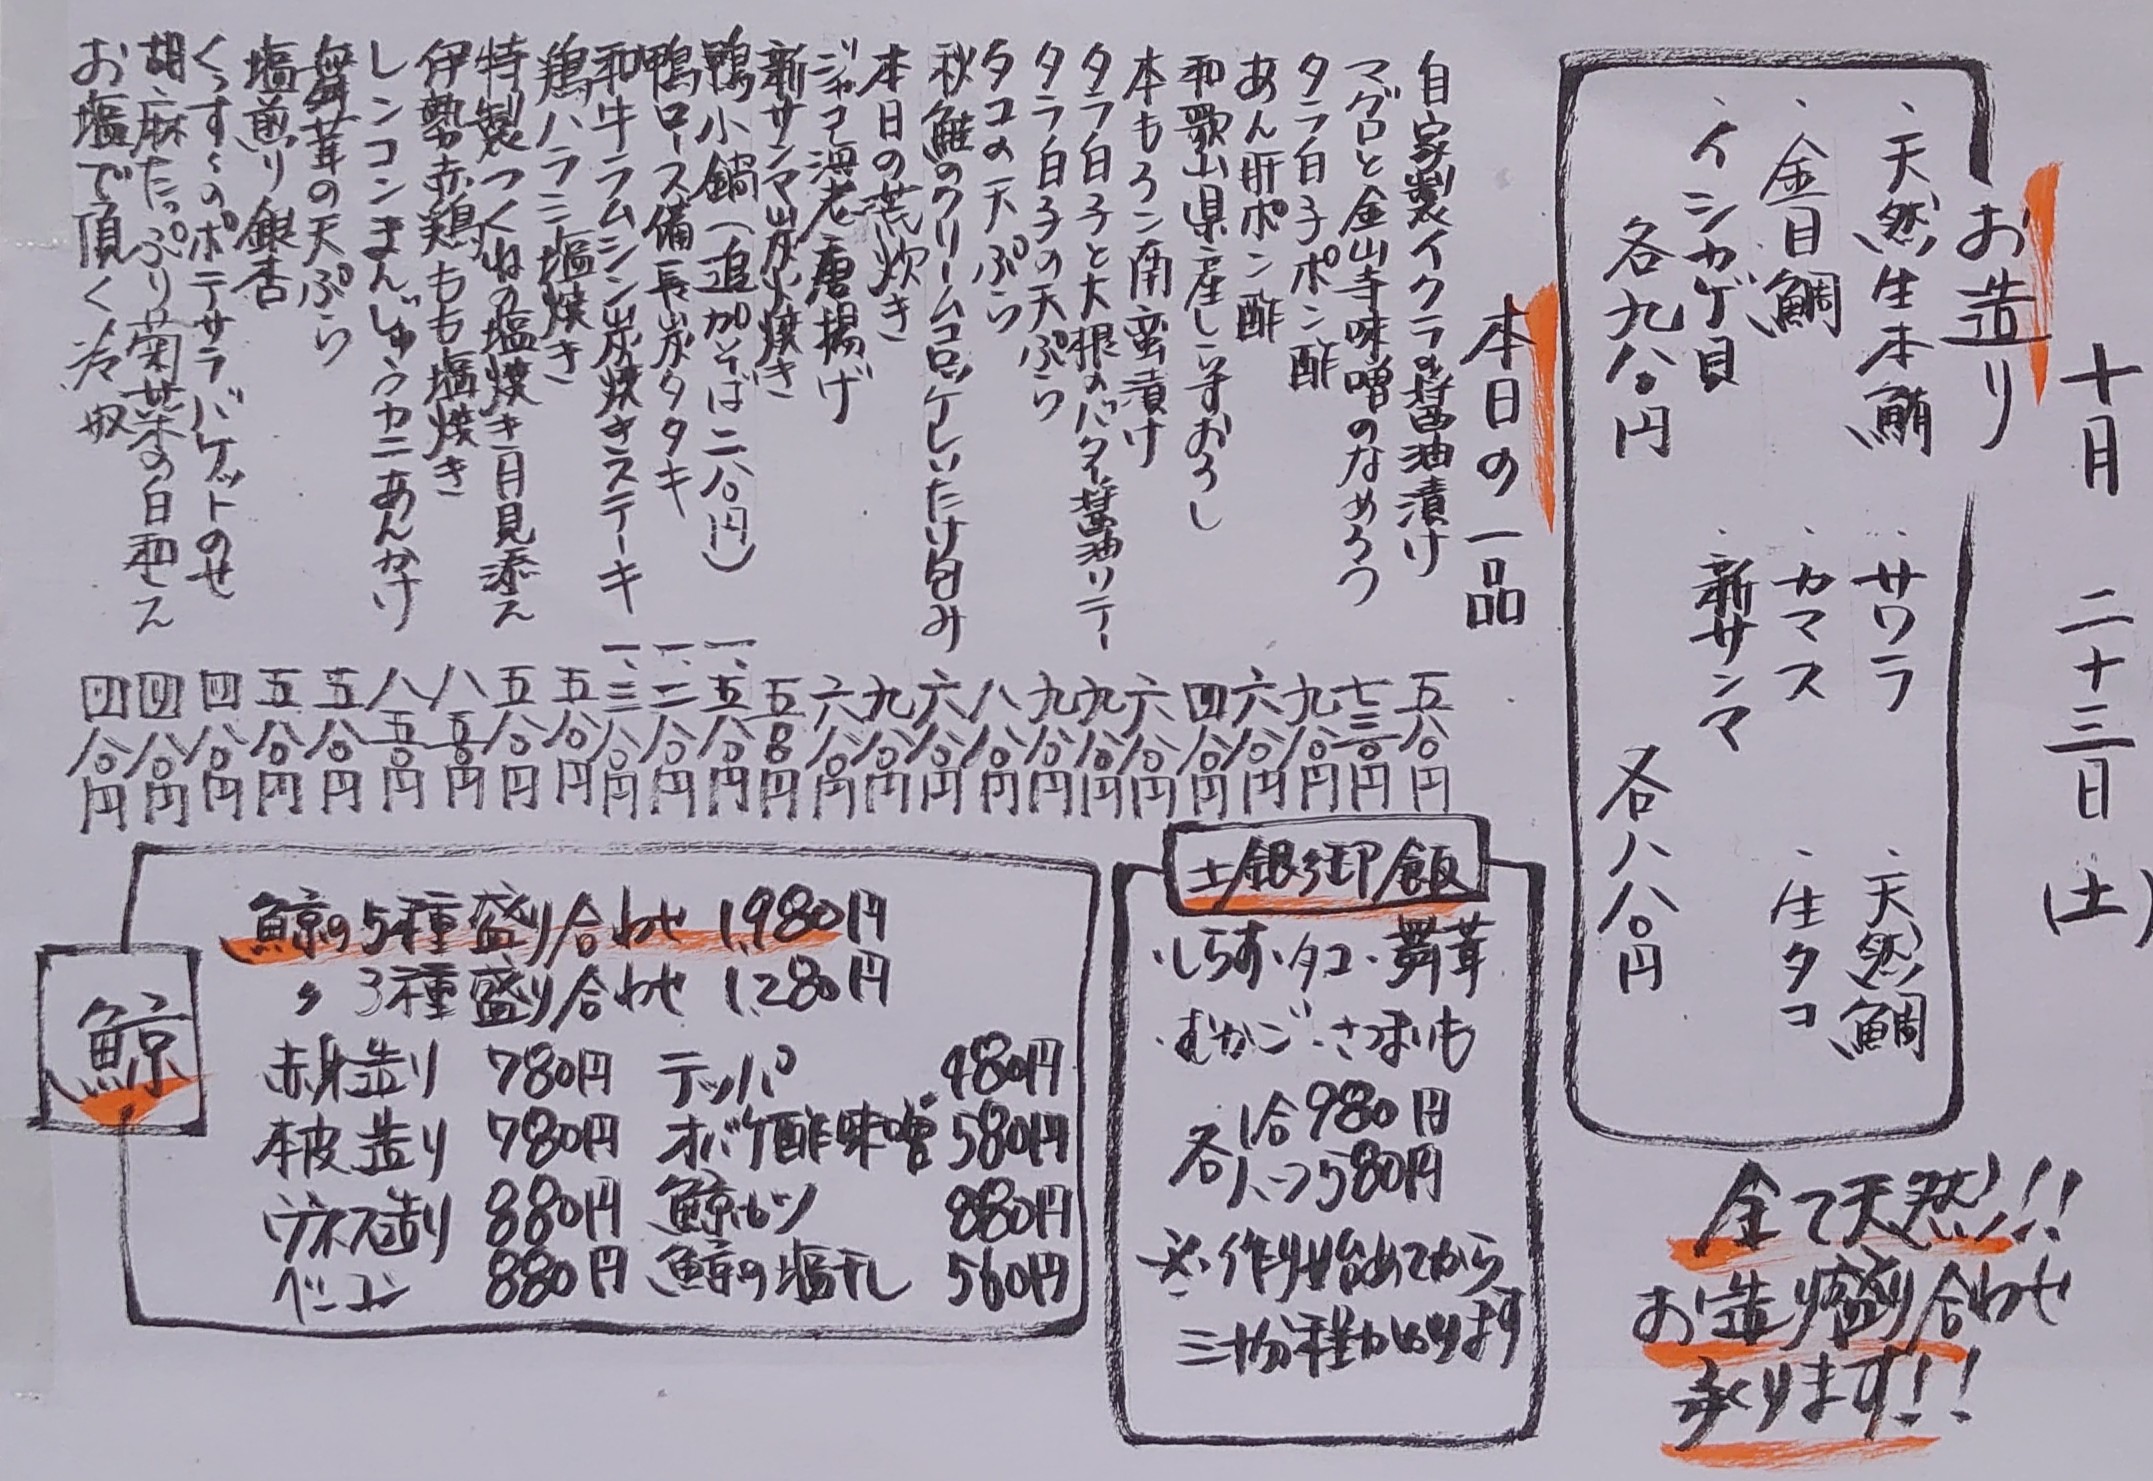 十月 二十三日(土)
お造り
・天然生本鮪
・金目鯛
・イシカゲ貝
各九八〇円
・サワラ
・カマス
・新サンマ
・天然鯛
・生タコ
各八八〇円
全て天然!!
お造り盛り合わせ
承ります!!
本日の一品
自家製イクラの醤油漬け 五八〇円
マグロと金山寺味噌のなめろう 七三〇円
タラ白子ポン酢 九八〇円
あん肝ポン酢 六八〇円
和歌山県産しらすおろし 四八〇円
本もろこ南蛮漬け 六八〇円
タラ白子と大根のバター醤油ソテー 九八〇円
タラ白子の天ぷら 九八〇円
タコの天ぷら 八八〇円
秋鮭のクリームコロッケしいたけ包み 六八〇円
本日の荒炊き 九八〇円
ジャコ海老唐揚げ 六八〇円
新サンマ炭火焼き 五八〇円
鴨小鍋(追加そば二八〇円) 一、五八〇円
鴨ロース備長炭タタキ 一、二八〇円
和牛ラムシン炭焼きステーキ 一、三八〇円
鶏ハラミ塩焼き 五八〇円
特製つくねの塩焼き月見添え 五八〇円
伊勢赤鶏もも塩焼き 八八〇円
レンコンまんじゅうカニあんかけ 八五〇円
舞茸の天ぷら 五八〇円
塩煎り銀杏 五八〇円
くっすくのポテサラバケットのせ 四八〇円
胡麻たっぷり菊菜の白和え 四八〇円
お塩で頂く冷奴 四八〇円
土鍋御飯
・しらす・タコ・舞茸
・むかご・さつまいも
各1合980円
各ハーフ580円
※作り始めてから
三十分程かかります
鯨
鯨の5種盛り合わせ 1,980円
〃 3種盛り合わせ 1,280円
赤身造り 780円
本皮造り 780円
ウネス造り 880円
ベーコン 880円
テッパ 480円
オバケ酢味噌 580円
鯨カツ 880円
鯨の塩干し 560円